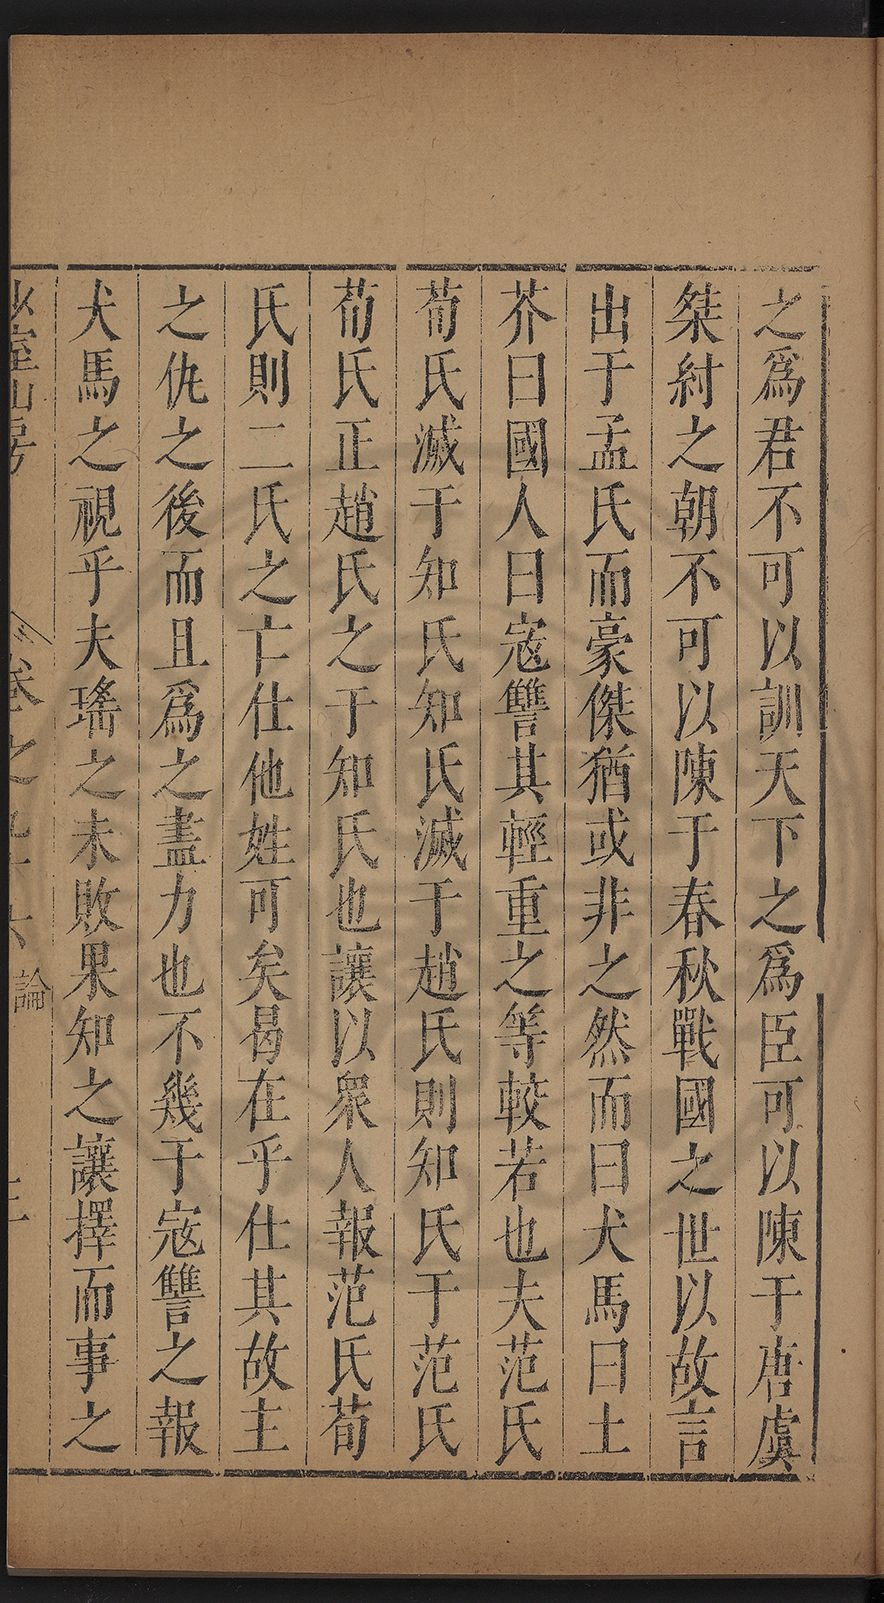 之爲君不可以訓天下之爲臣可以陳于唐虞
桀紂之朝不可以陳于春秋戰國之世以故言
出于孟氏而豪傑猶或非之然而曰犬馬曰土
芥曰國人曰寇讐其輕重之等較若也夫范氏
荀氏滅于知氏知氏滅于趙氏則知氏于范氏
荀氏正趙氏之于知氏也讓以衆人報范氏荀
氏則二氏之亡仕他姓可矣曷在乎仕其故主
之仇之後而且爲之盡力也不幾于寇讐之報
犬馬之視乎夫瑤之未敗果知之讓擇而事之
室山房 卷之九十六 論 三